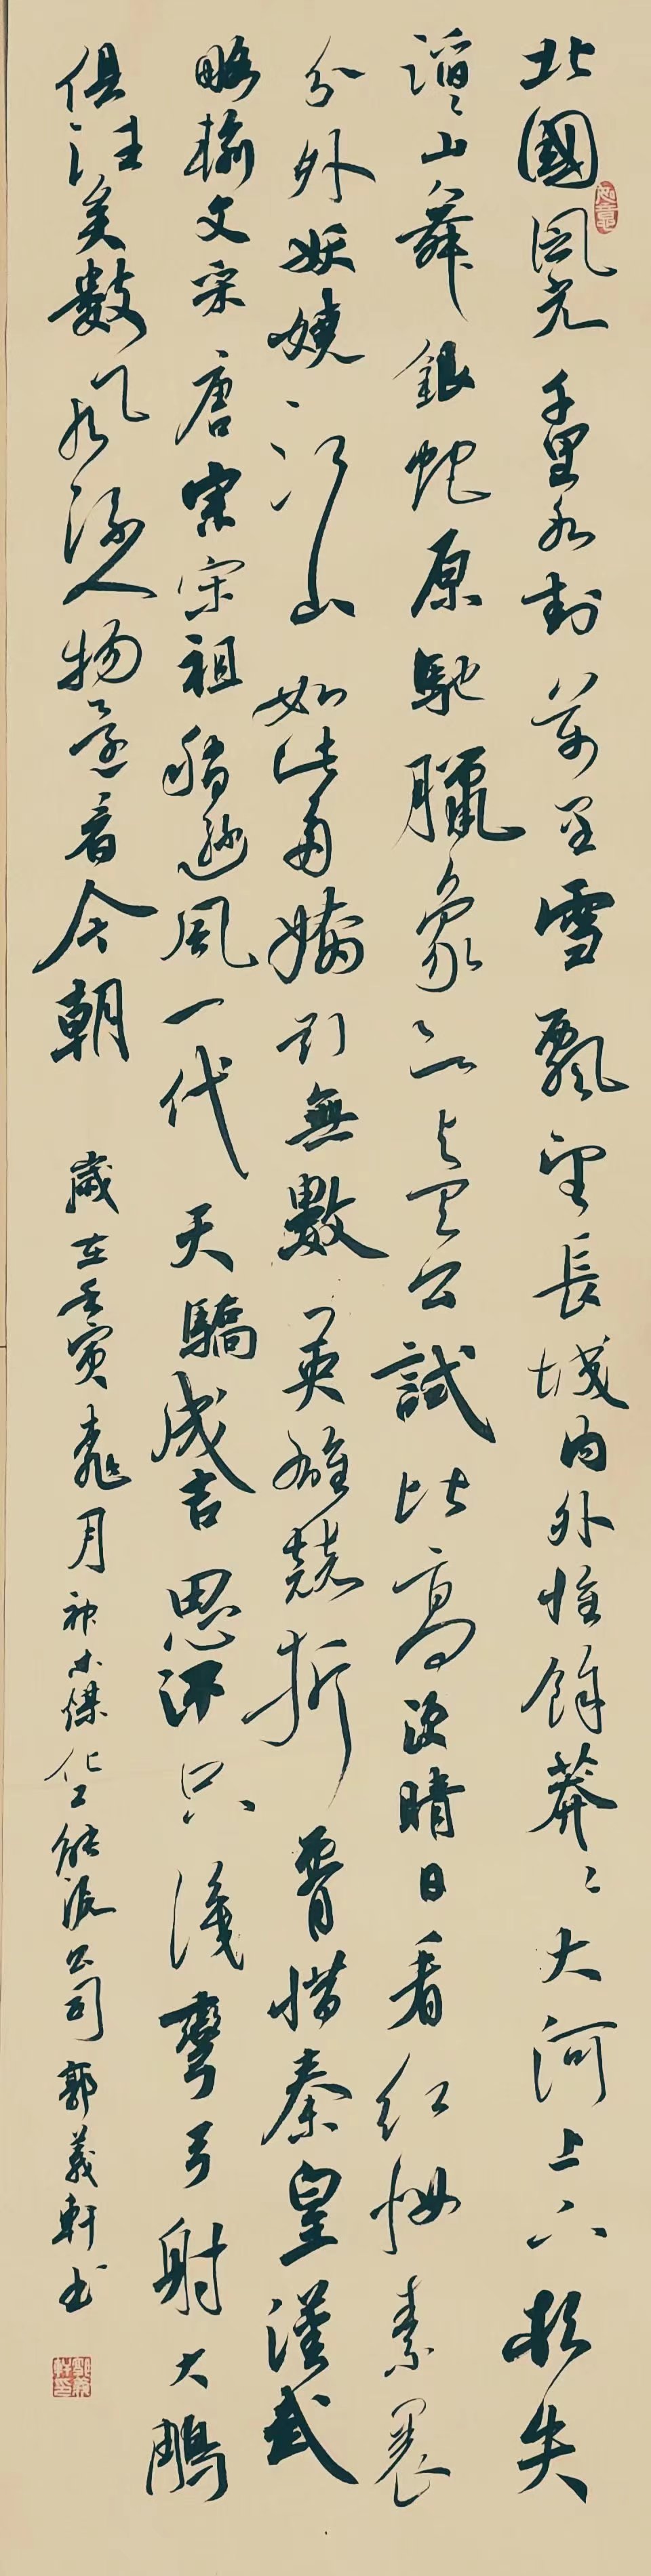 北國風光千里冰封萬里雪飄望長城内外惟餘莽〻大河上下頓失
滔〻山舞銀蛇原馳臘象欲与天公試比高須晴日看红妝素裹
分外妖嬈江山如此多嬌引無數英雄競折腰惜秦皇漢武
略輸文采唐宗宋祖稍遜風一代天驕成吉思汗只識彎弓射大鵰
俱往矣數风流人物還看今朝 歲在壬寅桃月神木煤化工能源公司郭義軒书
如意
郭義軒印